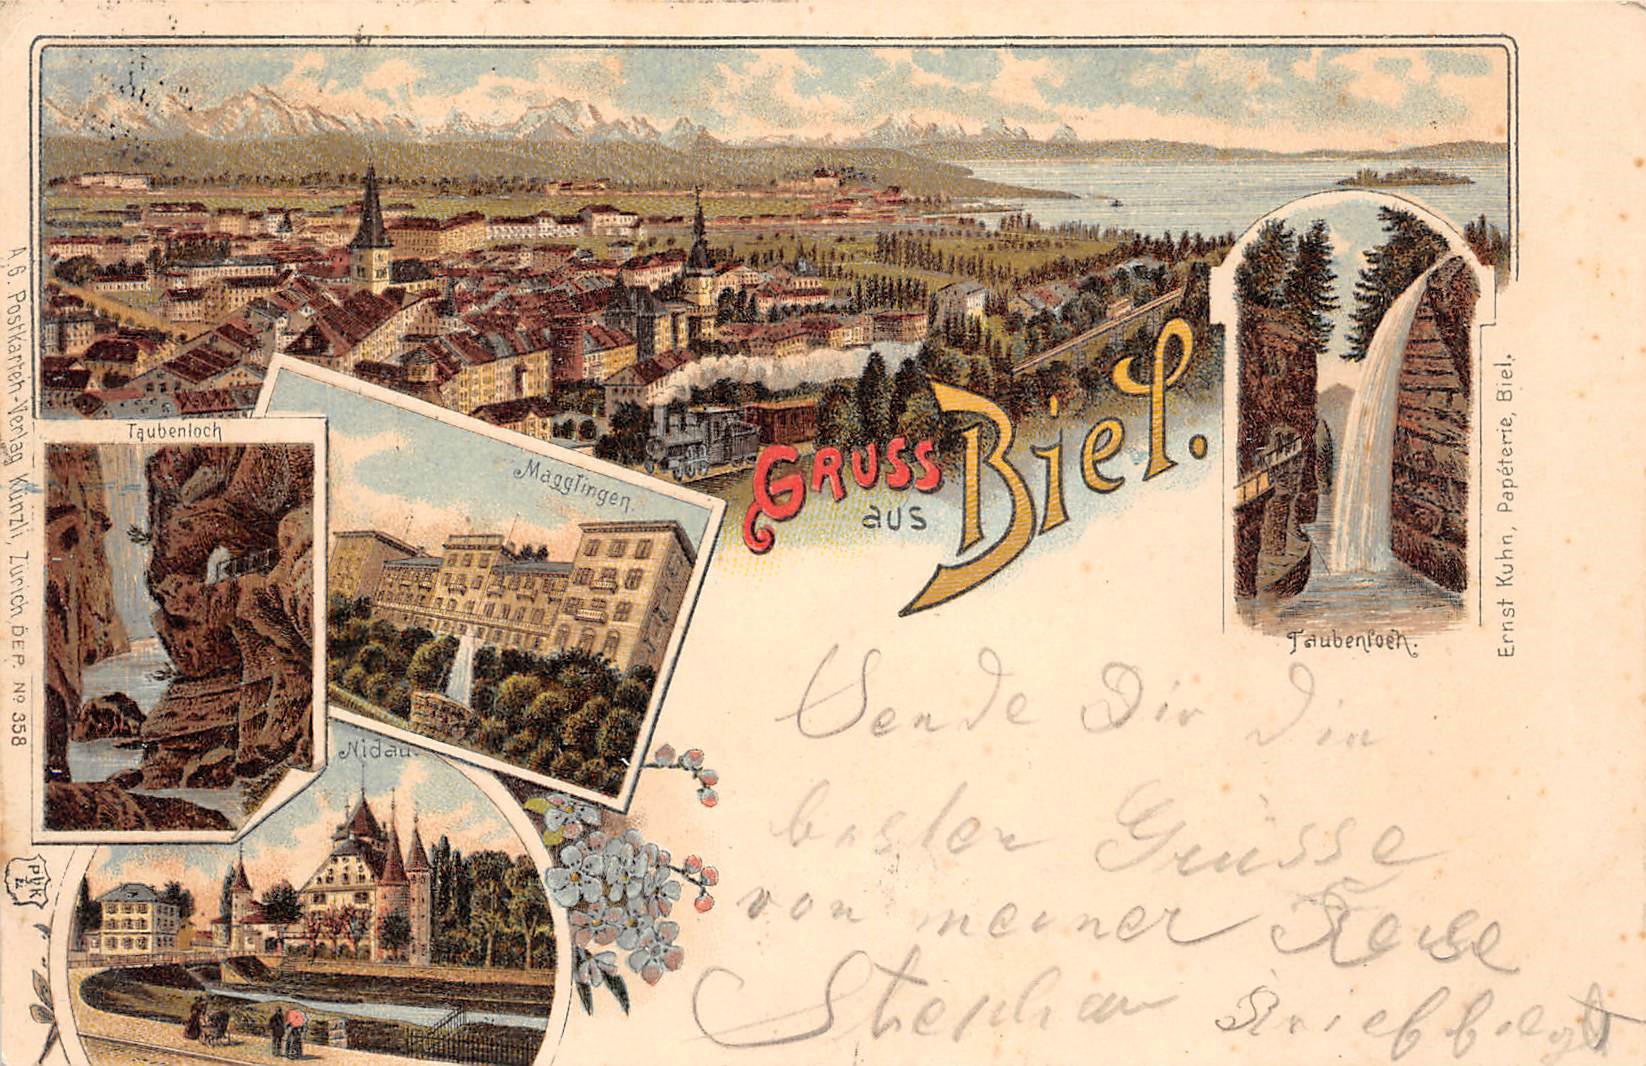 GRUSS
aus
Biel.
Taubenloch
Magglingen.
Nidau.
Taubenloch.
A. G. Postkarten-Verlag Künzli, Zürich, DEP. № 358
Ernst Kuhn, Papéterie, Biel.
Sende Dir die
besten Grüsse
von meiner Reise
Stephan